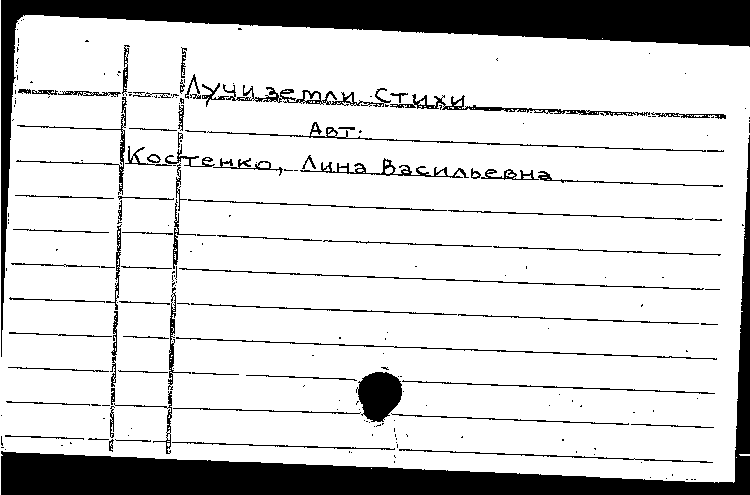 Лучи земли. Стихи.
Авт:
Костенко, Лина Васильевна.